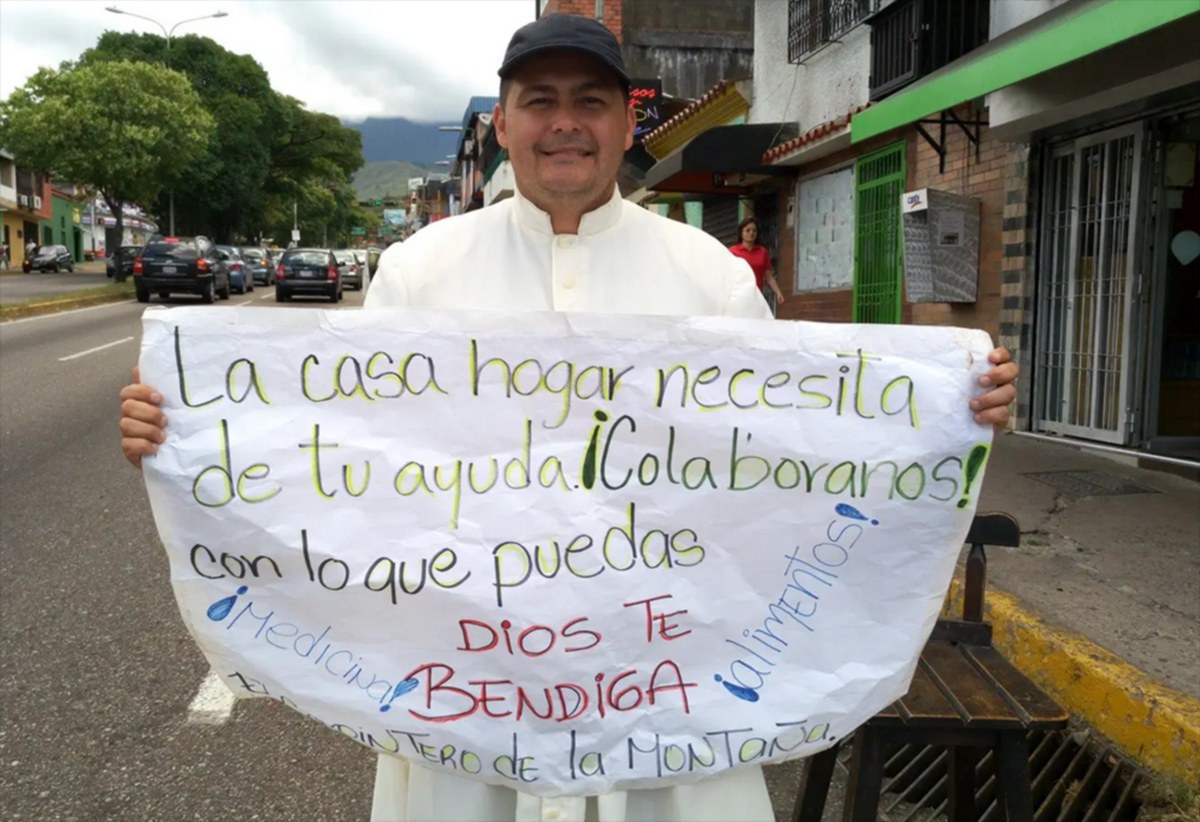 La casa hogar necesita
de tu ayuda. ¡Colaboranos!
con lo que puedas
¡Medicina!
¡alimentos!
DIOS TE
BENDIGA
DE la MONTAÑA.